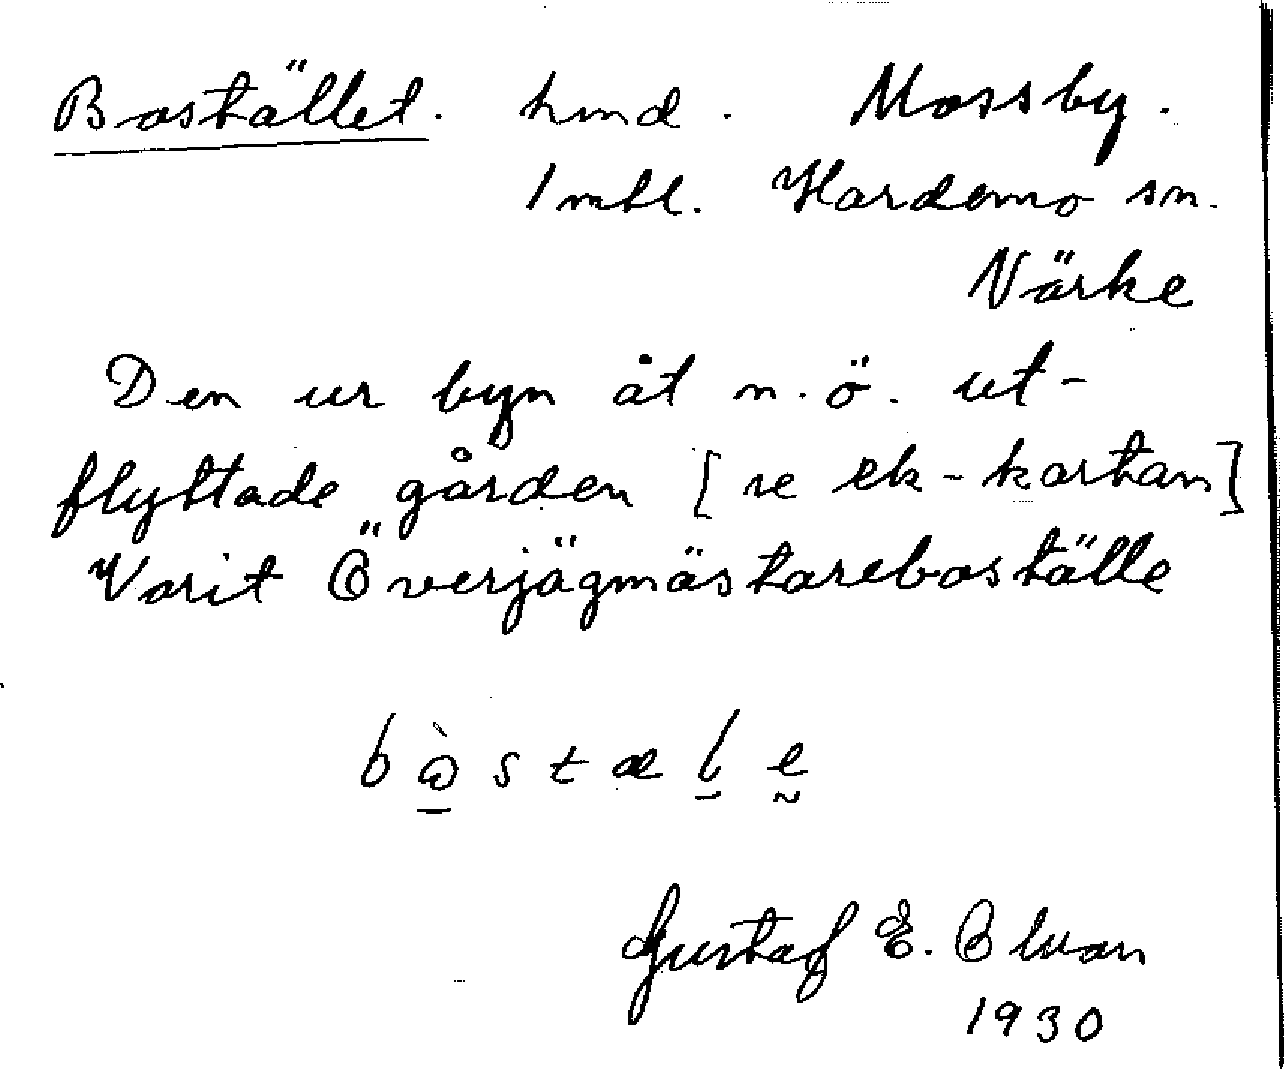 Bostället. hmd. Mossby.
1 mtl. Hardemo sn.
Närke
Den ur byn åt n.ö. ut-
flyttade gården [se ek-kartan]
Varit Överjägmästareboställe
bòstæle
Gustaf E. Olvan
1930